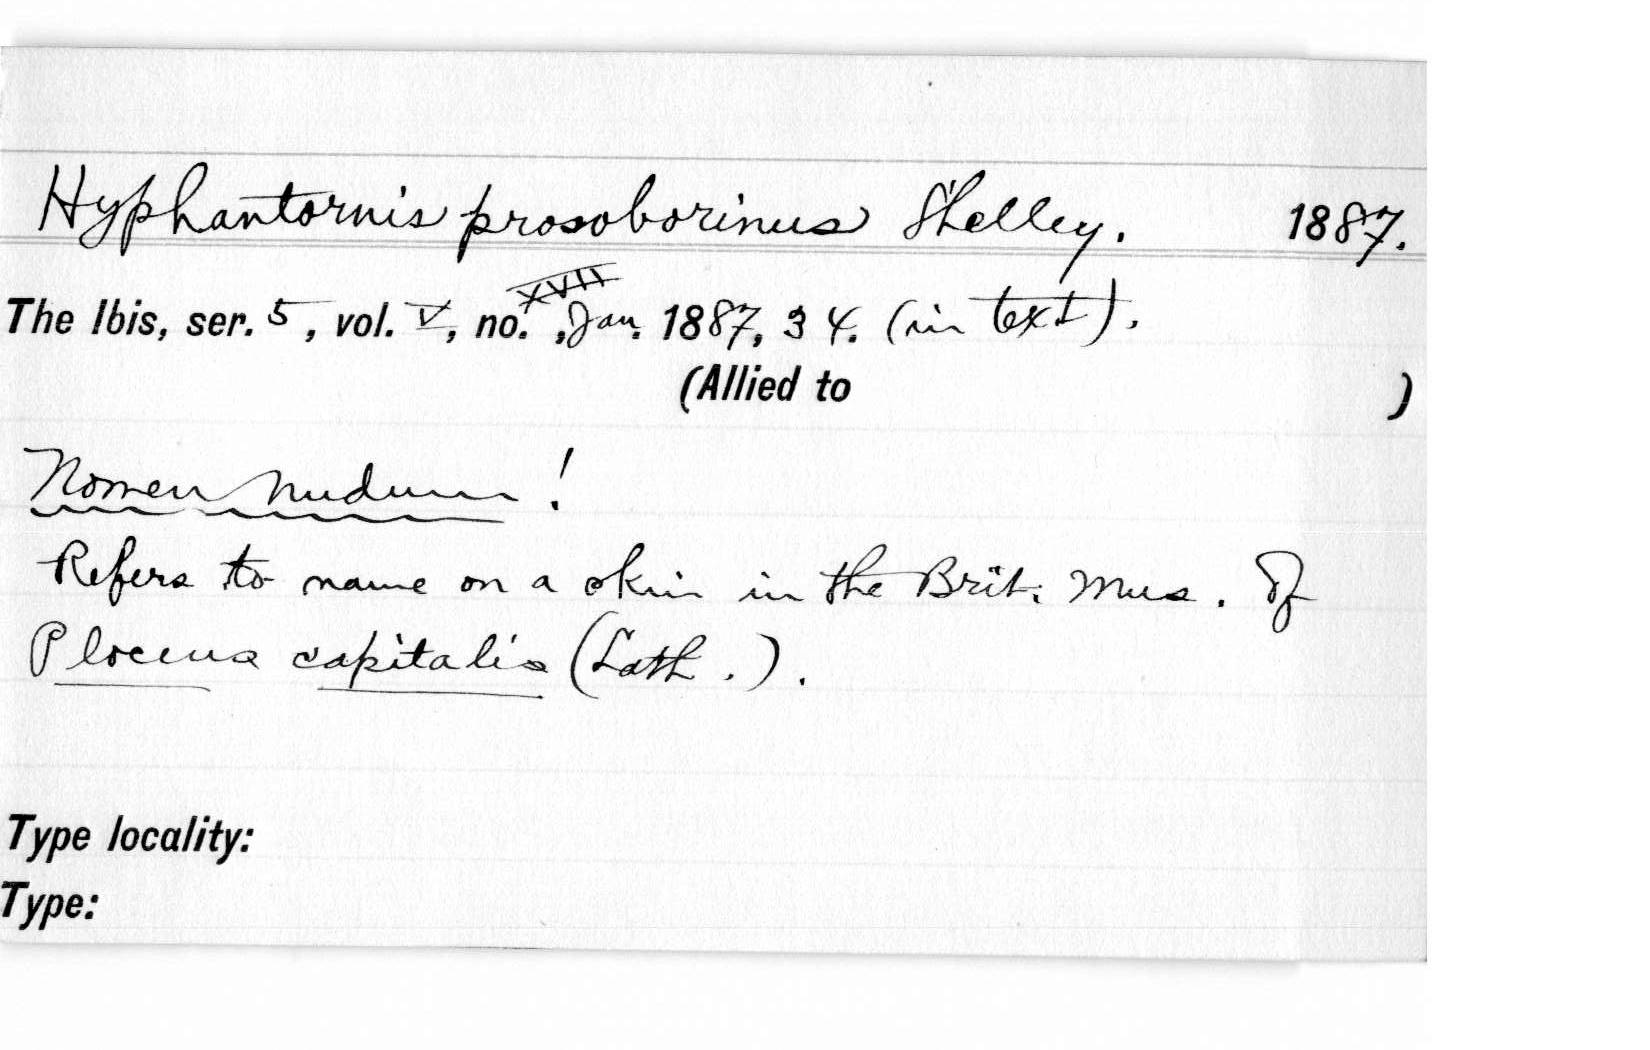 Hyphantornis prosoborinus Shelley. 1887.
The Ibis, ser. 5, vol. V, no. XVII, Jan. 1887, 34. (in text).
(Allied to )
Nomen nudum!
Refers to name on a skin in the Brit. Mus. Of
Ploceus capitalis (Lath.).
Type locality:
Type: